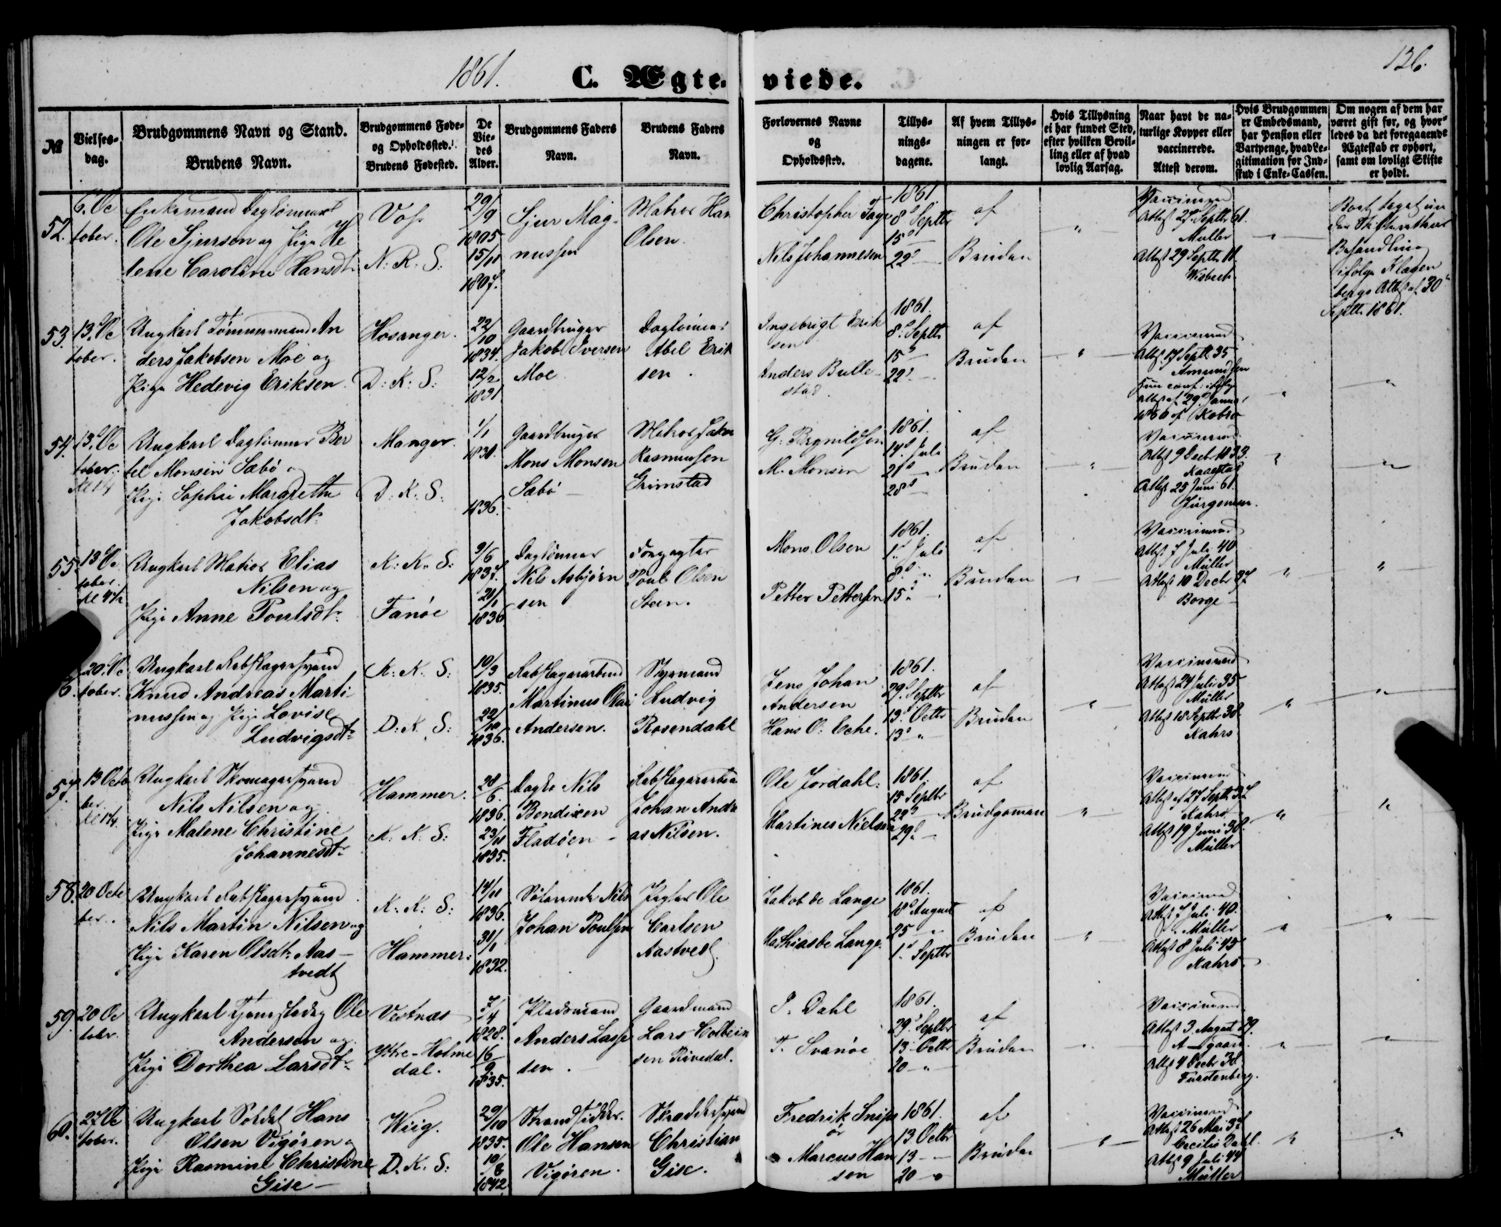 1861.
C. Ægteviede.
126.
№
Vielses-
dag.
Brudgommens Navn og Stand.
Brudens Navn.
Brudgommens Føde-
og Opholdssted.
Brudens Fødested.
De
Vie-
des
Alder.
Brudgommens Faders
Navn.
Brudens Faders
Navn.
Forlovernes Navne
og
Opholdssted.
Tillys-
nings-
dagene.
Af hvem Tillys-
ningen er for-
langt.
Hvis Tillysning
ei har fundet Sted,
efter hvilken Bevil-
ling eller af hvad
lovlig Aarsag.
Naar havt de na-
turlige Kopper eller
vaccinerede.
Attest derom.
Hvis Brudgommen
er Embedsmand,
har Pension eller
Vartpenge, hvad Le-
gitimation for Ind-
skud i Enke-Cassen.
Om nogen af dem har
været gift før, og hvor-
ledes da det foregaaende
Ægteskab er ophørt,
samt om lovligt Skifte
er holdt.
52.
6. Oc
tober.
Enkemand Daglønner
Ole Sjursen og Pige He
lene Caroline Hansdr.
Vos
N: K: S:
29/9
1805
15/11
1807.
Sjur Mag-
nussen
Matros Han
Olsen.
Christopher
Nils Johannesen
1861
8de Septbr
15de
22de
af
Bruden
Vaccineret
Attest 2 Septbr 61.
Müller
Attest 29 Septbr 11.
Behandling
ifølge Klagen
bergs Attest af 30te
Septbr. 1861.
53.
13. Oc
tober.
Ungkarl Tømmermand An
ders Jakobsen Moe og
Pige Hedevig Eriksen
Hosanger.
D: K: S:
22/10
1834.
12/2
1831
Gaardbruger
Jakob Iversen
Moe
Daglønner
Abel Erik
sen.
Ingebrigt Erik
sen
Anders Bulle
stad.
1861.
8de Septbr
15de
22de
af
Bruden
Vaccineret
Attest 17 Septbr 35
Amundsen
54.
13. Oc
tober.
Ungkarl Daglønner Ber
tel Monsen Sæbø og
Pige Sophie Margrethe
Jakobsdr.
Manger.
D: K: S:
1/1
1831
1836.
Gaardbruger
Mons Monsen
Sæbø
Matros Jakob
Rasmussen
Grimstad
M. Monsen
1861
14de Juli
21de
28de
af
Bruden
Vaccineret
Attest 9 Octbr 1833.
Attest 25 Juni 61.
Jürgensen.
55.
13 Oc
tober.
Kl 4½
Ungkarl Matros Elias
Nilsen og
Pige Anne Poulsdr.
K: K: S:
Fanöe
9/6
1837.
21/1
1836
Daglønner
Nils Asbjørn
sen
Forpagter
Poul Olsen
Steen.
Mons Olsen
Petter Pettersen
1861.
1de Juli
8de
15de
af
Bruden
Vaccineret
Attest 7 Juli 40
Müller
Attest 10 Decbr 37
Borge
6.
20. Oc
tober.
Ungkarl Rebslagersvend
Knud Andreas Marti
nussen og Pige Lovise
Ludvigsdr.
K: K: S:
D: K: S:
10/3
1835.
22/10
1836.
Rebslagersvend
Martinus Olai
Andersen.
Styrmand
Ludvig
Rosendahl
Jens Johan
Andersen
Hans O. Eche.
1861.
29de Septbr
13de Octbr
13de
af
Bruden
Vaccineret
Attest 24 Juli 35
Müller
Attest 18 Septbr 38.
Kahrs
57.
13 Octo
ber.
Ungkarl Skomagersvend
Nils Nilsen og
Pige Malene Christine
Johannesdr.
Hammer.
K: K: S:
28/6
1836.
23/11
1835.
Nils
Bendixen
Fladöen
Rebslagersvend
Johan Andre
as Nilsen.
Ole Jordahl.
Martines Nielsen
1861.
15 Septbr
22de
29de
af
Brudgommen
Vaccineret
Attest af 27 Septbr 37
Kahrs
Attest 19 Juni 38.
Müller
58.
20 Octo
ber.
Ungkarl Rebslagersvend
Nils Martin Nilsen og
Pige Karen Olsdr. Aas-
tvedt
K: K: S:
Hammer.
14/11
1836.
31/1
1832.
Nils
Johan Poulsen
Ole
Carlsen
Aastvedt
Jakob de Lange
Mathias de Lange.
1861.
18de August
25
1. Septbr
af
Bruden
Vaccineret
Attest 7 Juli 40.
Müller
Attest 8 Juli 45
Kahrs
59.
20 Oc
tobr.
Ungkarl Tjenestedreng Ole
Andersen og
Pige Dorthea Larsdr.
Vestnæs
Ytre-Holme
dal.
7/4
1828.
6/9
1835.
Pladsmand
Anders Lasse
sen.
Gaardmand
Lars Colbein
sen Rivedal.
P. Dahl
T. Svanöe
1861.
29de Septbr
13. Octbr
20
af
Bruden
Vaccineret
Attest 3 August 29.
A. Lgaard
Attest 4 Octbr 38
Fürstenberg.
60.
27 Oc
tober.
Ungkarl Soldat Hans
Olsen Vigören og
Pige Rasmine Christine
Gise
Wiig.
D: K: S:
29/10
1835.
10/8
1842
Strandsidder
Ole Hansen
Vigören.
Skræddersvend
Christian
Gise.
Fredrik Snips
ör
Marcus Han
sen
1861.
13 Octbr
13
20
af
Bruden
Vaccineret
Attest 26 Mai 37
Cecilie Dahl
Attest 9 Juli 44
Müller